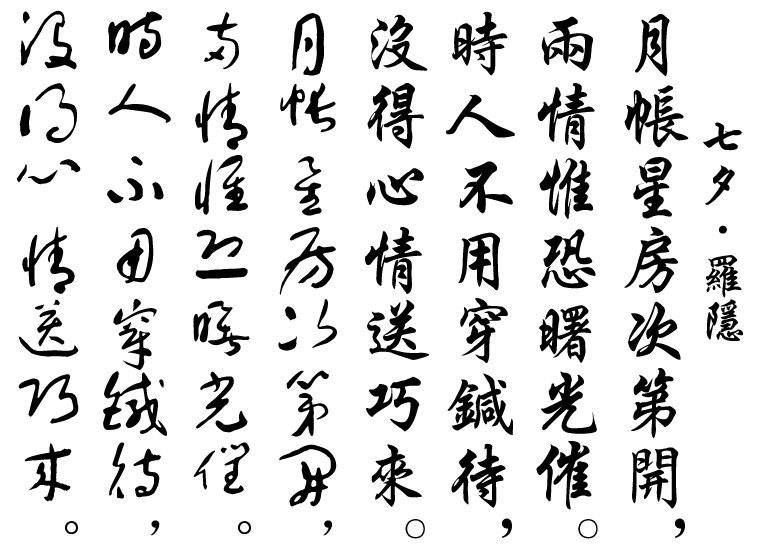 七夕·羅隱
月帳星房次第開，
兩情惟恐曙光催。
時人不用穿鍼待，
沒得心情送巧來。
月帳星房次第開，
兩情惟恐曙光催。
時人不用穿鍼待，
沒得心情送巧來。